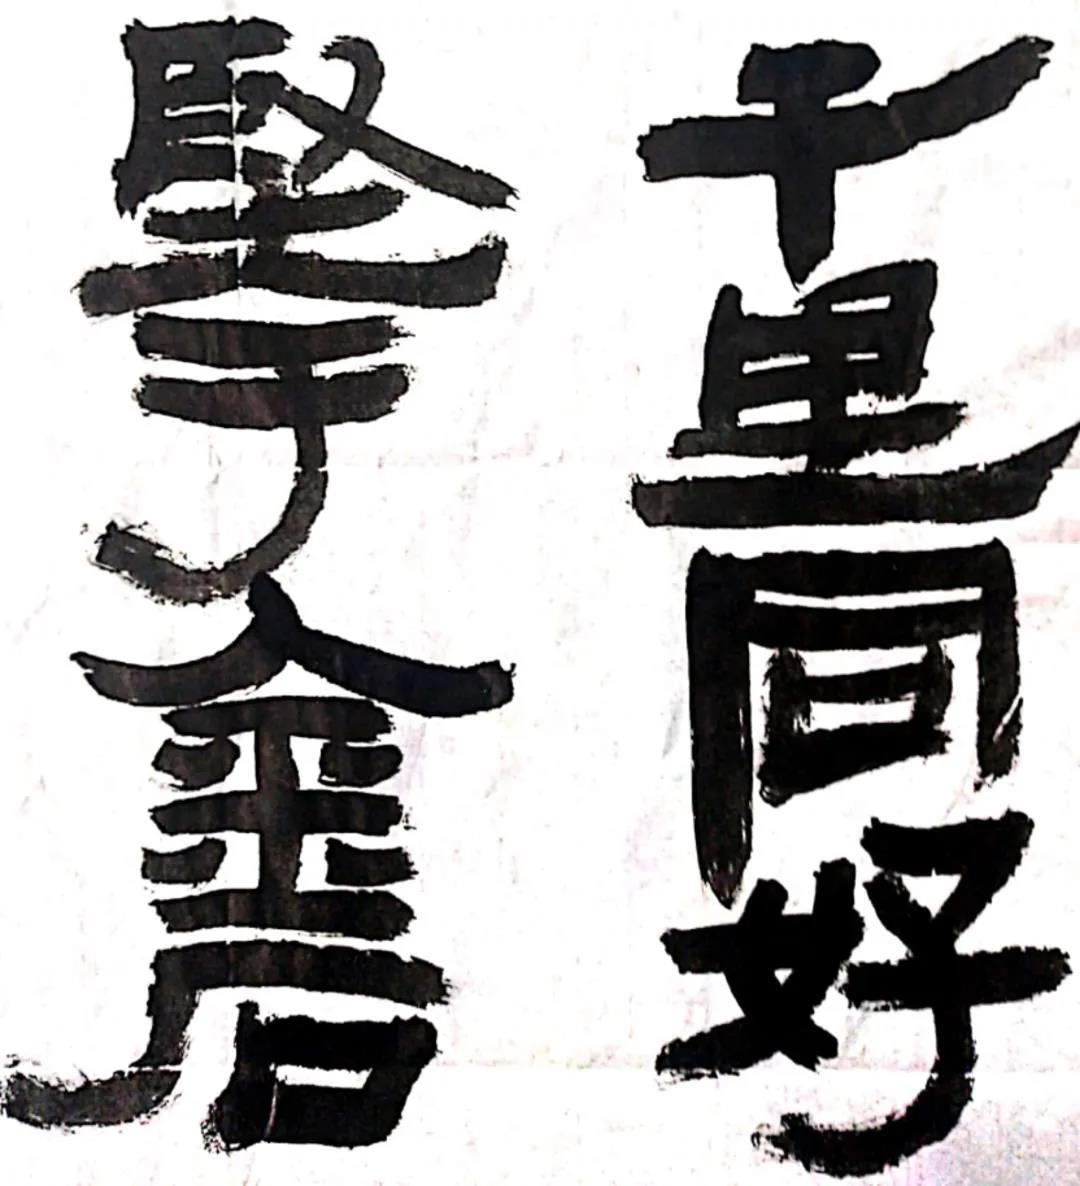 千里同好
堅于金石